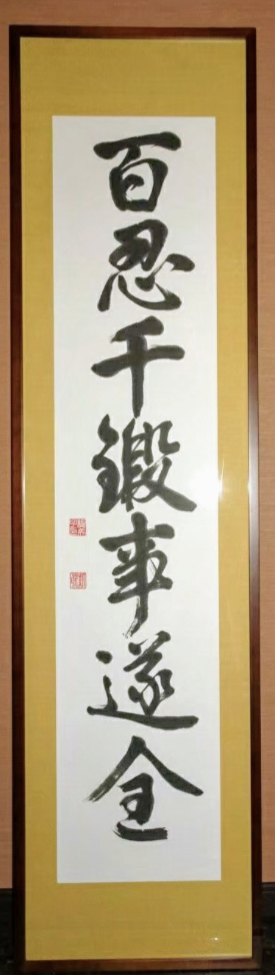 百忍千鍛事遂全